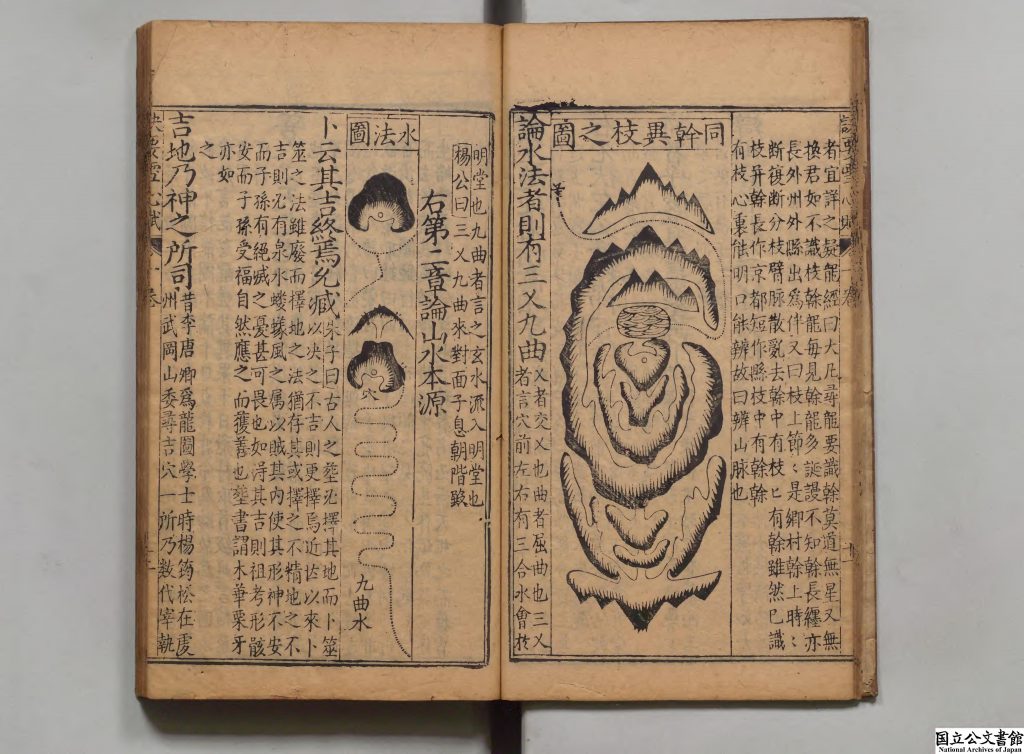 者宜詳之疑龍經曰大凡尋龍要識幹莫道無星又無
換君如不識枝幹龍每見幹龍多誕謾不知幹長纏亦
長外州外縣出爲伴又曰枝上節〻是鄉村幹上時〻
断復断分枝臂脉散亂去幹中有枝匕有幹雖然已識
枝异幹長作京都短作縣枝中有幹幹
有枝心裏能明口能辨故曰辨山脉也
同幹異枝之圖
論水法者則有三乂九曲
乂者交乂也曲者屈曲也三乂
者言穴前左右有三合水會扵
明堂也九曲者言之玄水流入明堂也
楊公曰三乂九曲來對面子息朝階毆
右第二章論山水本源
水法圖
穴
九曲水
卜云其吉終焉允臧
朱子曰古人之塟必擇其地而卜筮
以决之不吉則更擇焉近世以來卜
筮之法雖廢而擇地之法猶存其或擇之不精地之不
吉則必有泉水螻蟻風之属以賊其内使其形神不安
而子孫有絕滅之憂甚可畏也如淂其吉則祖考形骸
安而子孫受福自然應之而獲善也塟書謂木華栗牙
亦如
之
吉地乃神之所司
昔李唐卿爲龍圖學士時楊筠松在䖏
州武岡山委尋吉穴一所乃数代宰執
国立公文書館
National Archives of Japan